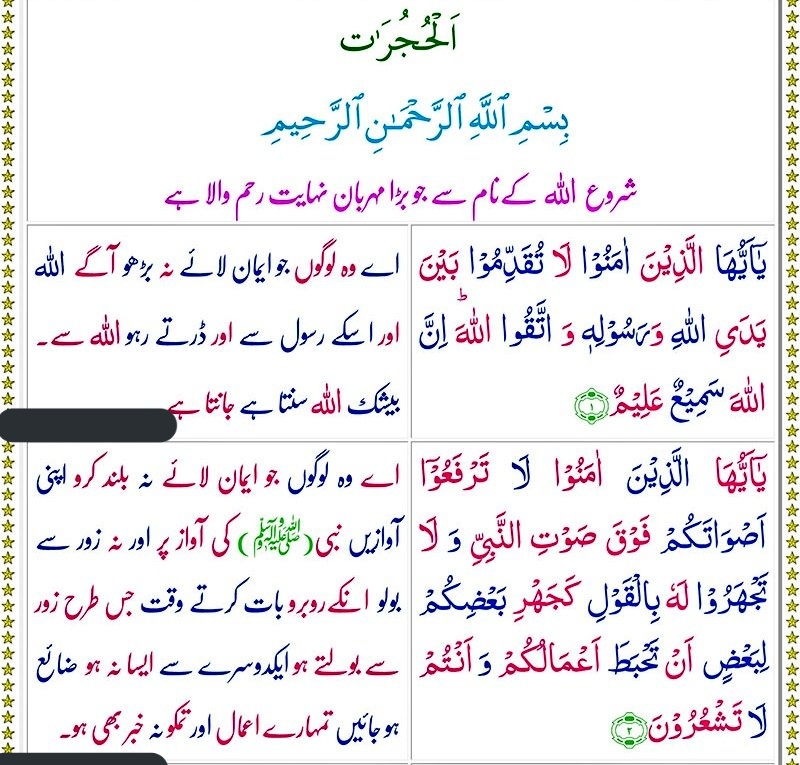 اَلْحُجُرٰت
بِسْمِ ٱللَّهِ ٱلرَّحْمَـٰنِ ٱلرَّحِيمِ
شروع اللہ کے نام سے جو بڑا مہربان نہایت رحم والا ہے
يٰٓاَيُّهَا الَّذِيْنَ اٰمَنُوْا لَا تُقَدِّمُوْا بَيْنَ
يَدَيِ اللّٰهِ وَرَسُوْلِهٖ وَ اتَّقُوا اللّٰهَ ؕ اِنَّ
اللّٰهَ سَمِيْعٌ عَلِيْمٌ ۱
اے وہ لوگوں جو ایمان لائے نہ بڑھو آگے اللہ
اور اسکے رسول سے اور ڈرتے رہو اللہ سے۔
بیشک اللہ سنتا ہے جانتا ہے
يٰٓاَيُّهَا الَّذِيْنَ اٰمَنُوْا لَا تَرْفَعُوْٓا
اَصْوَاتَكُمْ فَوْقَ صَوْتِ النَّبِيِّ وَ لَا
تَجْهَرُوْا لَهٗ بِالْقَوْلِ كَجَهْرِ بَعْضِكُمْ
لِبَعْضٍ اَنْ تَحْبَطَ اَعْمَالُكُمْ وَ اَنْتُمْ
لَا تَشْعُرُوْنَ ۲
اے وہ لوگوں جو ایمان لائے نہ بلند کرو اپنی
آوازیں نبی(ﷺ) کی آواز پر اور نہ زور سے
بولو انکے روبرو بات کرتے وقت جس طرح زور
سے بولتے ہو ایکدوسرے سے ایسا نہ ہو ضائع
ہو جائیں تمہارے اعمال اور تمکو نہ خبر بھی ہو۔